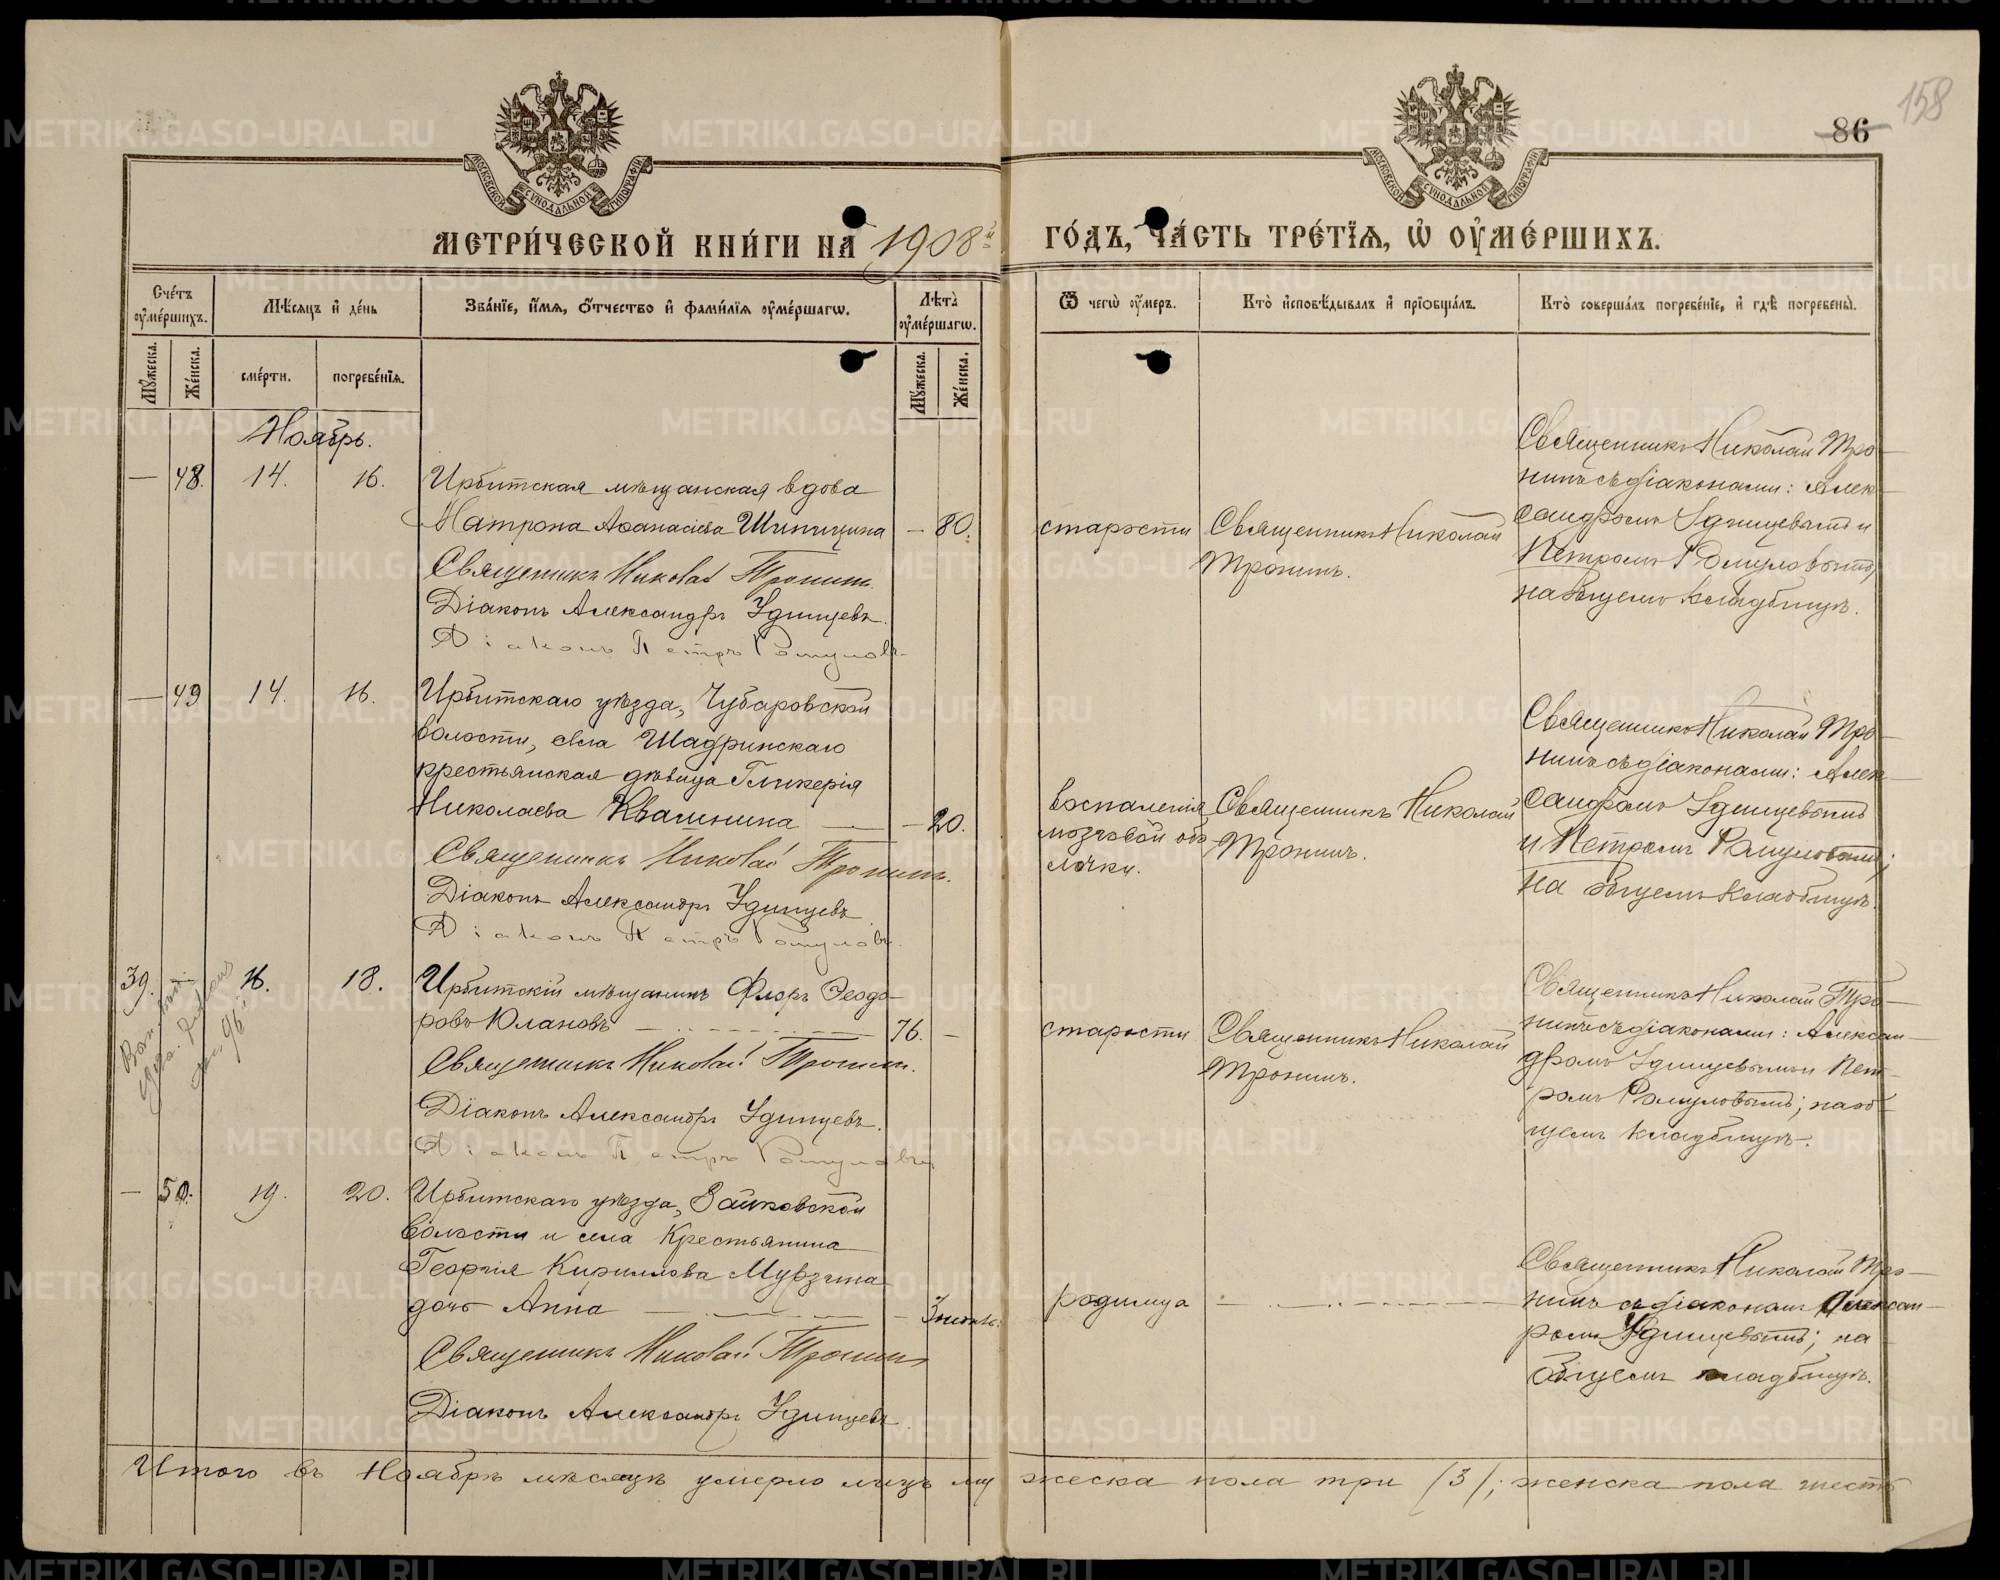 158
86
МОСКОВСКОЙ СѴНОДАЛЬНОЙ ТИПОГРАФІИ
МОСКОВСКОЙ СѴНОДАЛЬНОЙ ТИПОГРАФІИ
МЕТРИ́ЧЕСКОЙ КНИ́ГИ НА 1908й ГО́ДЪ, ЧА́СТЬ ТРЕ́ТЇѦ, Ѡ ОУ҆МЕ́РШИХЪ.
Сче́тъ оу҆ме́ршихъ.
Мꙋ́жеска.
Же́нска.
Мѣ́сѧцъ и҆ де́нь
сме́рти.
погребе́нїѧ.
Зва́нїе, и҆́мѧ, ѻ҆́тчество и҆ фами́лїѧ оу҆ме́ршагѡ.
Лѣ́та оу҆ме́ршагѡ.
Мꙋ́жеска.
Же́нска.
Ѿ чегѡ̀ оу҆́меръ.
Кто̀ и҆сповѣ́дывалъ и҆ прїѡбща́лъ.
Кто̀ соверша́лъ погребе́нїе, и҆ гдѣ̀ погребены̀.
Ноябрь.
— 48. 14. 16.
Ирбитская мѣщанская вдова
Матрона Аѳанасіева Шипицина — 80.
Священникъ Николай Тронинъ.
Діаконъ Александръ Удинцевъ.
Діаконъ Петръ Ромуловъ
старости
Священникъ Николай
Тронинъ.
Священникъ Николай Тро-
нинъ съ діаконами: Алек-
сандромъ Удинцевымъ и
Петромъ Ромуловымъ,
на общемъ кладбищѣ.
— 49 14. 16.
Ирбитскаго уѣзда, Чубаровской
волости, села Шадринскаго
крестьянская дѣвица Гликерія
Николаева Квашнина — — 20.
Священникъ Николай Тронинъ.
Діаконъ Александръ Удинцевъ
Діаконъ Петръ Ромуловъ.
воспаленія
мозговой обо-
лочки.
Священникъ Николай
Тронинъ.
Священникъ Николай Тро-
нинъ съ діаконами: Алек-
сандромъ Удинцевымъ
и Петромъ Ромуловымъ;
на общемъ кладбищѣ.
39. — 16. 18.
Ирбитскій мѣщанинъ Флоръ Ѳеодо-
ровъ Юлановъ — 76. —
Священникъ Николай Тронинъ.
Діаконъ Александръ Удинцевъ.
Діаконъ Петръ Ромуловъ
старости
Священникъ Николай
Тронинъ.
Священникъ Николай Тро-
нинъ съ діаконами: Алексан-
дромъ Удинцевымъ и Пет-
ромъ Ромуловымъ; на об-
щемъ кладбищѣ.
— 50. 19. 20.
Ирбитскаго уѣзда, Зайковской
волости и села Крестьянина
Георгія Кириллова Мурзина
дочь Анна — — 3 мѣсяц.
Священникъ Николай Тронинъ
Діаконъ Александръ Удинцевъ.
родимца —
Священникъ Николай Тро-
нинъ съ діакономъ Алексан-
ромъ Удинцевымъ; на
общемъ кладбищѣ.
Итого въ Ноябрѣ мѣсяцѣ умерло лицъ мужеска пола три (3); женска пола шесть
METRIKI.GASO-URAL.RU